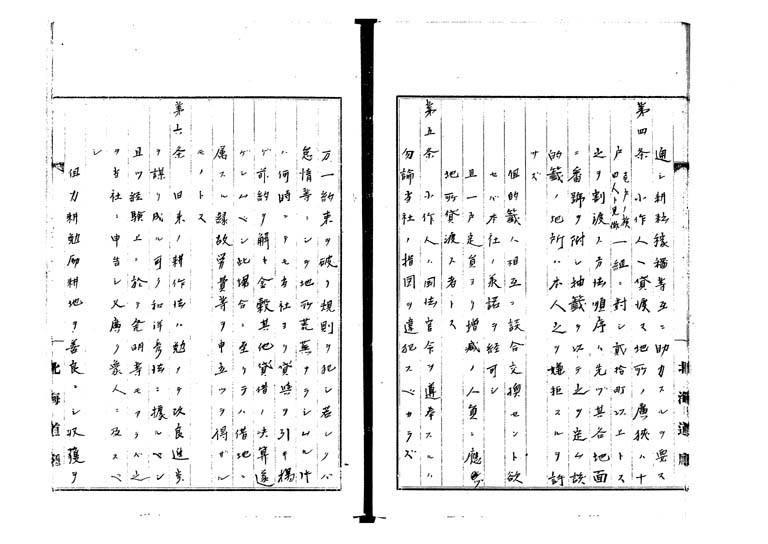 通シ耕耘稼穡等互ニ助力スルヲ要ス
第四条 小作人ヘ貸渡ス地所ノ廣狭ハ十
戸 一組ニ対シ貳拾町以上トス
四人ト見做
之ヲ割渡ス方法順序ハ先ヅ其各地面
ニ番號ヲ附シ抽籤ヲ以テ之ヲ定ム該
的籤ノ地所ハ本人之ヲ嫌拒スルヲ許
サズ
但的籤ハ相互ニ談合交換セント欲
セバ本社ノ承諾ヲ経可シ
且一戸定員ヨリ増減ノ人員ニ應ジ
地所貸渡ス者トス
第五条 小作人ハ国法官令ヲ遵奉スルハ
勿論当社ノ指図ヲ違犯スベカラズ
北海道廳
万一約束ヲ破リ規則ヲ犯シ若シクハ
怠惰等ニシテ地所荒蕪ナラシムル片
ハ何時ニテモ当社ヨリ貸與ヲ引キ揚
ゲ前約ヲ解ト金穀其他貸借ノ决算遂
ゲシムベシ此場合ニ至リテハ借地ニ
属スル縁故労費等ヲ申立ツヲ得ザル
モノトス
第六条 旧来ノ耕作法ハ勉テ改良進歩
ヲ謀リ成ル可ク和洋参法ニ據ルベシ
且ツ経験上ニ於テ発明等モアラバ之
ヲ当社ニ申告シ又廣ク衆人ニ及スベ
シ
但力耕勉励耕地ヲ善良ニシ収穫ヲ
北海道廳